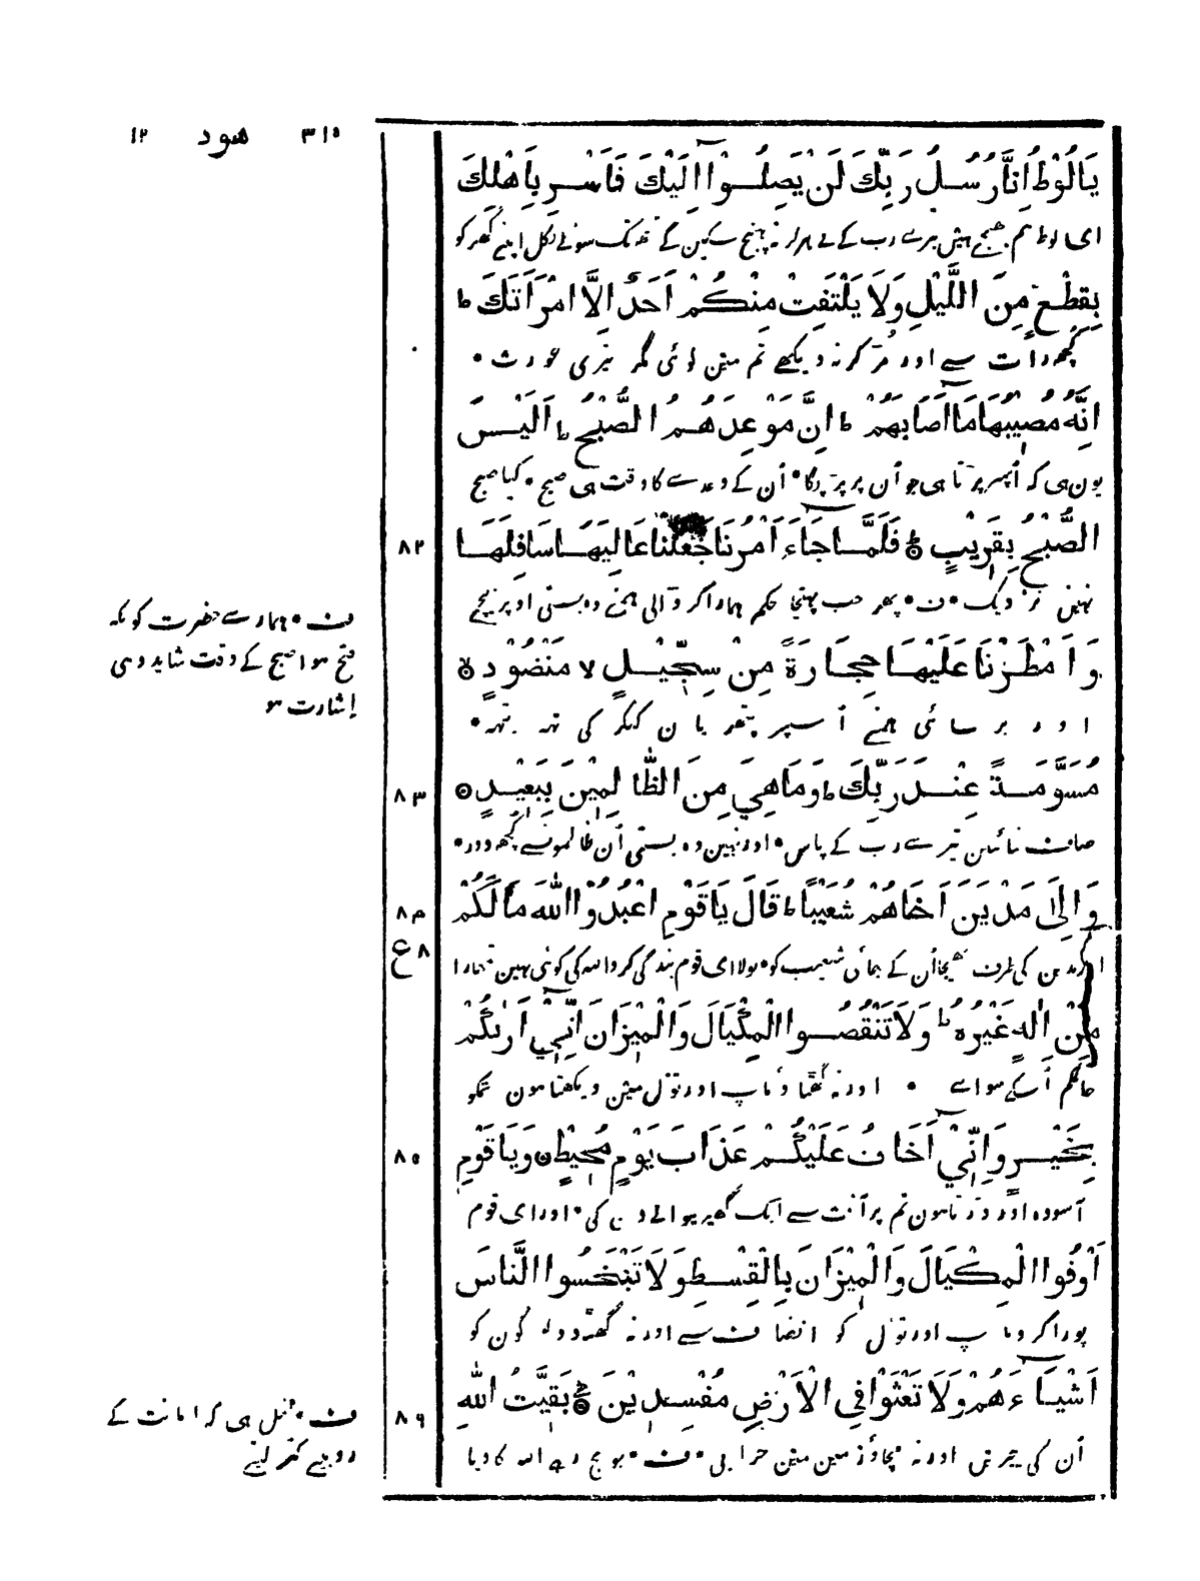 ۳۱۵ هود ۱۲
يَا لُوْطُ اِنَّا رُسُلُ رَبِّكَ لَنْ يَصِلُوْٓا اِلَيْكَ فَاَسْرِ بِاَهْلِكَ
ای لوط ہم بھیجے ہین تیرے رب کے یے ہرگز نہ پہنچ سکین گے تجھ تک سو لے نکل اپنے گھر کو
بِقِطْعٍ مِنَ اللَّيْلِ وَلَا يَلْتَفِتْ مِنْكُمْ اَحَدٌ اِلَّا امْرَاَتَكَ ط
کچھ رات سے اور مڑ کر نہ دیکھے تم مین کوئی مگر تیری عورت •
اِنَّهٗ مُصِيْبُهَا مَا اَصَابَهُمْ ط اِنَّ مَوْعِدَهُمُ الصُّبْحُ ط اَلَيْسَ
یون ہی کہ اُسپر پڑتا ہی جو اُن پر پڑیگا • اُن کے وعدے کا وقت ہی صبح • کیا صبح
۸۲ الصُّبْحُ بِقَرِيْبٍ فَلَمَّا جَآءَ اَمْرُنَا جَعَلْنَا عَالِيَهَا سَافِلَهَا
نہین نزدیک • ف • پھر جب پہنچا حکم ہمارا کر ڈالی ہمنے وہ بستی اوپر نیچے
وَاَمْطَرْنَا عَلَيْهَا حِجَارَةً مِنْ سِجِّيْلٍ لا مَنْضُوْدٍ
اور برسائی ہمنے اُسپر پتھریان کنکر کی تہ بتہ •
۸۳ مُسَوَّمَةً عِنْدَ رَبِّكَ ط وَمَا هِيَ مِنَ الظَّالِمِيْنَ بِبَعِيْدٍ
تیرے رب کے پاس • اور نہین وہ بستی اُن ظالمونسے کچھ دور •
۸۴ وَاِلٰى مَدْيَنَ اَخَاهُمْ شُعَيْبًا ط قَالَ يَا قَوْمِ اعْبُدُوْا اللّٰهَ مَا لَكُمْ
ع ۸ اور مدین کی طرف بھیجا اُن کے بھائی شعیب کو • بولا ای قوم بندگی کرو اللہ کی کوئی نہین تمہارا
مِنْ اِلٰهٍ غَيْرُهٗ ط وَلَا تَنْقُصُوا الْمِكْيَالَ وَالْمِيْزَانَ اِنِّيْٓ اَرٰىكُمْ
حاکم اُسکے سواے • اور نہ گھٹاؤ ماپ اور تول مین دیکھتا ہون تمکو
۸۵ بِخَيْرٍ وَاِنِّيْٓ اَخَافُ عَلَيْكُمْ عَذَابَ يَوْمٍ مُحِيْطٍ وَيَا قَوْمِ
آسودہ اور ڈرتا ہون تم پر آفت سے ایک گھیر نیوالے دن کی • اور ای قوم
اَوْفُوا الْمِكْيَالَ وَالْمِيْزَانَ بِالْقِسْطِ وَلَا تَبْخَسُوا النَّاسَ
پورا کرو ماپ اور تول کو انصاف سے اور نہ گھٹا دو لوگون کو
۸۶ اَشْيَآءَهُمْ وَلَا تَعْثَوْا فِي الْاَرْضِ مُفْسِدِيْنَ بَقِيَّتُ اللّٰهِ
اُن کی چیزین اور نہ مچاؤ زمین مین خرابی • ف • جو بچ رہے اللہ کا دیا
ف • ہمارے حضرت کو مکہ
فتح ہوا صبح کے وقت شاید وہی
اشارت ہو
ف • ہی کہ امانت کے
روپیے کتر لیتے